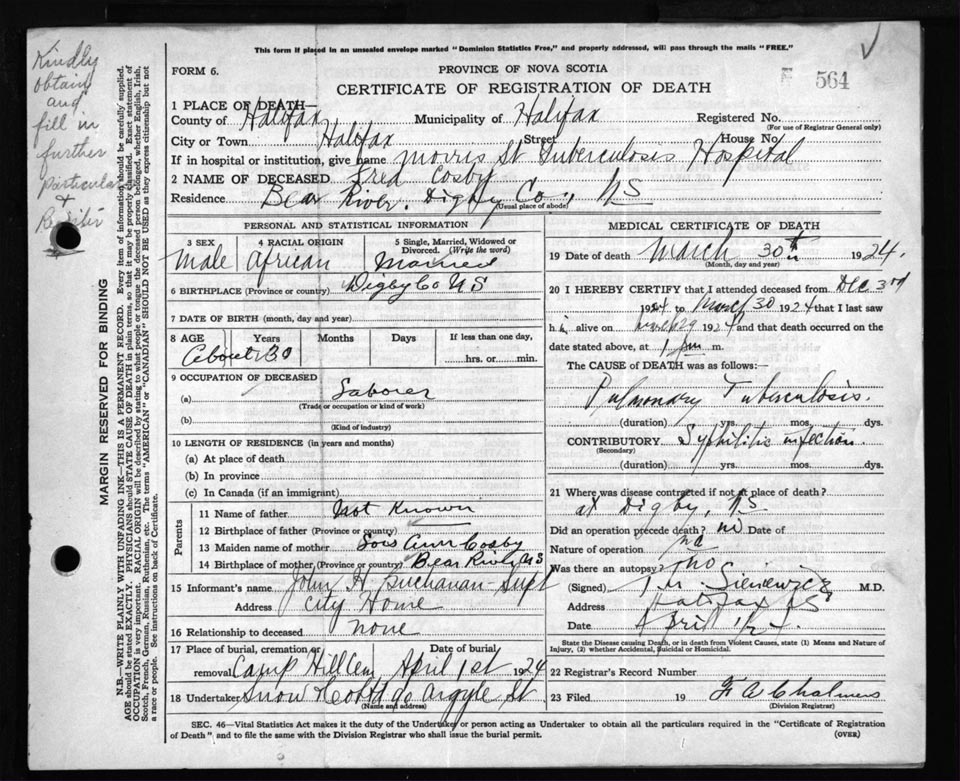 This form if placed in an unsealed envelope marked "Dominion Statistics Free," and properly addressed, will pass through the mails "FREE."
FORM 6.
PROVINCE OF NOVA SCOTIA
564
CERTIFICATE OF REGISTRATION OF DEATH
Kindly
obtain
and
fill in
further
particulars
+
MARGIN RESERVED FOR BINDING
N.B.—WRITE PLAINLY WITH UNFADING INK—THIS IS A PERMANENT RECORD. Every item of information should be carefully supplied.
AGE should be stated EXACTLY. PHYSICIANS should STATE CAUSE OF DEATH in plain terms, so that it may be properly classified. Exact statement of
OCCUPATION is very important. RACIAL ORIGIN will be described by stating to what people or tongue the deceased person belonged, whether English, Irish,
Scotch, French, German, Russian, Ruthenian, etc. The terms "AMERICAN" or "CANADIAN" SHOULD NOT BE USED as they express citizenship but not
a race or people. See instructions on back of Certificate.
1 PLACE OF DEATH—
County of Halifax Municipality of Halifax Registered No.
(For use of Registrar General only)
City or Town Halifax Street House No.
If in hospital or institution, give name Morris St Tuberculosis Hospital
2 NAME OF DECEASED Fred Cosby
Residence Bear River, Digby Co., NS
(Usual place of abode)
PERSONAL AND STATISTICAL INFORMATION
3 SEX 4 RACIAL ORIGIN 5 Single, Married, Widowed or Divorced. (Write the word)
Male African Married
6 BIRTHPLACE (Province or country) Digby Co NS
7 DATE OF BIRTH (month, day and year)
8 AGE Years Months Days If less than one day,
About 30 hrs. or min.
9 OCCUPATION OF DECEASED
(a) Laborer
(Trade or occupation or kind of work)
(b)
(Kind of industry)
10 LENGTH OF RESIDENCE (in years and months)
(a) At place of death
(b) In province
(c) In Canada (if an immigrant)
Parents
11 Name of father Not Known
12 Birthplace of father (Province or country)
13 Maiden name of mother Lois Ann Cosby
14 Birthplace of mother (Province or country) Bear River NS
15 Informant's name John H Buchanan Supt
Address City Home
16 Relationship to deceased none
17 Place of burial, cremation or removal Date of burial
Camp Hill Cem April 1st 1924
18 Undertaker Snow & Co Argyle St
(Name and address)
MEDICAL CERTIFICATE OF DEATH
19 Date of death March 30th 1924.
(Month, day and year)
20 I HEREBY CERTIFY that I attended deceased from Dec 3rd
to March 30 1924 that I last saw
h alive on 1924 and that death occurred on the
date stated above, at 1 pm m.
The CAUSE OF DEATH was as follows:
Pulmonary Tuberculosis.
(duration) yrs. mos. dys.
CONTRIBUTORY Syphilitic infection.
(Secondary)
(duration) yrs. mos. dys.
21 Where was disease contracted if not at place of death?
at Digby, NS
Did an operation precede death? no Date of
Nature of operation no
Was there an autopsy? no
(Signed) Sieniewicz M.D.
Address Halifax NS
Date April
State the Disease causing Death, or in death from Violent Causes, state (1) Means and Nature of
Injury, (2) whether Accidental, Suicidal or Homicidal.
22 Registrar's Record Number
23 Filed 19 F A Chalmers
(Division Registrar)
SEC. 46—Vital Statistics Act makes it the duty of the Undertaker or person acting as Undertaker to obtain all the particulars required in the "Certificate of Registration
of Death" and to file the same with the Division Registrar who shall issue the burial permit. (OVER)